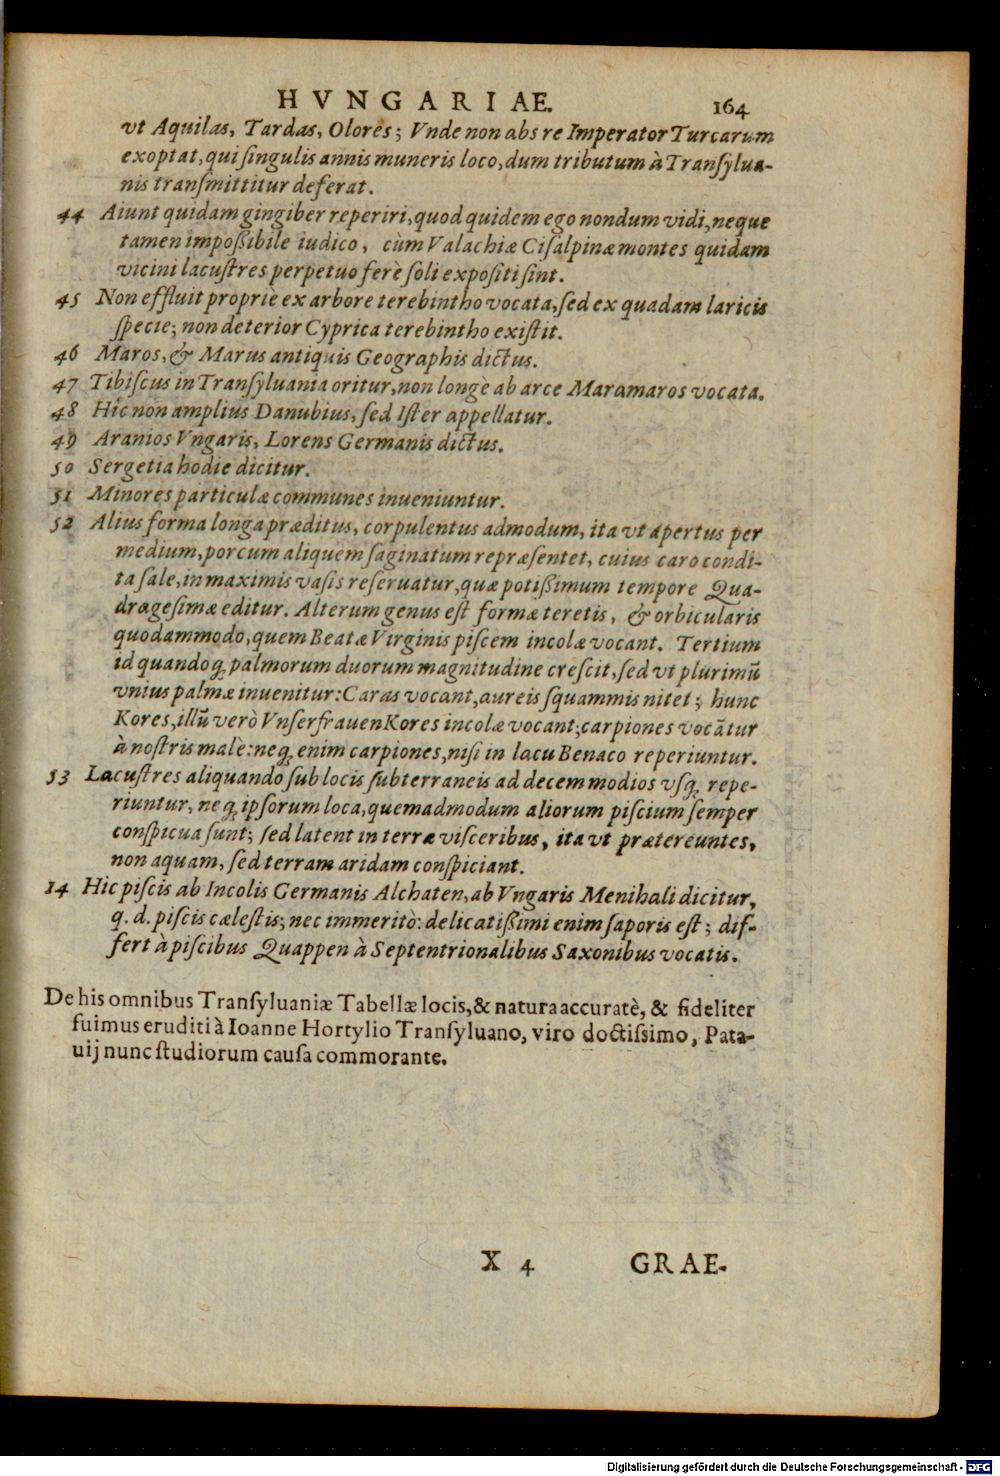 HVNGARIAE. 164
vt Aquilas, Tardas, Olores; Vnde non abs re Imperator Turcarum
exoptat, qui ſingulis annis muneris loco, dum tributum à Tranſylua-
nis tranſmittitur deferat.
44 Aiunt quidam gingiber reperiri, quod quidem ego nondum vidi, neque
tamen impoßibile iudico, cùm Valachiæ Ciſalpinæ montes quidam
vicini lacuſtres perpetuo ferè ſoli expoſiti ſint.
45 Non effluit propriè ex arbore terebintho vocata, ſed ex quadam laricis
ſpecie; non deterior Cyprica terebintho exiſtit.
46 Maros, & Marus antiquis Geographis dictus.
47 Tibiſcus in Tranſyluania oritur, non longè ab arce Maramaros vocata.
48 Hîc non amplius Danubius, ſed Iſter appellatur.
49 Aranios Vngaris, Lorens Germanis dictus.
50 Sergetia hodie dicitur.
51 Minores particulæ communes inueniuntur.
52 Alius forma longa præditus, corpulentus admodum, ita vt apertus per
medium, porcum aliquem ſaginatum repræſentet, cuius caro condi-
ta ſale, in maximis vaſis reſeruatur, quæ potißimum tempore Qua-
drageſimæ editur. Alterum genus eſt formæ teretis, & orbicularis
quodammodo, quem Beatæ Virginis piſcem incolæ vocant. Tertium
id quandoq; palmorum duorum magnitudine creſcit, ſed vt plurimũ
vnius palmæ inuenitur: Caras vocant, aureis ſquammis nitet; hunc
Kores, illũ verò Vnſerfrauen Kores incolæ vocant; carpiones vocãtur
à noſtris malè: neq; enim carpiones, niſi in lacu Benaco reperiuntur.
53 Lacuſtres aliquando ſub locis ſubterraneis ad decem modios vſq; repe-
riuntur, neq; ipſorum loca, quemadmodum aliorum piſcium ſemper
conſpicua ſunt; ſed latent in terræ viſceribus, ita vt prætereuntes,
non aquam, ſed terram aridam conſpiciant.
14 Hic piſcis ab Incolis Germanis Alchaten, ab Vngaris Menihali dicitur,
q. d. piſcis cæleſtis; nec immeritò: delicatißimi enim ſaporis eſt; dif-
fert à piſcibus Quappen à Septentrionalibus Saxonibus vocatis.
De his omnibus Tranſyluaniæ Tabellæ locis, & natura accuratè, & fideliter
fuimus eruditi à Ioanne Hortylio Tranſyluano, viro doctiſsimo, Pata-
uij nunc ſtudiorum cauſa commorante.
X 4 GRAE-
Digitalisierung gefördert durch die Deutsche Forschungsgemeinschaft - DFG